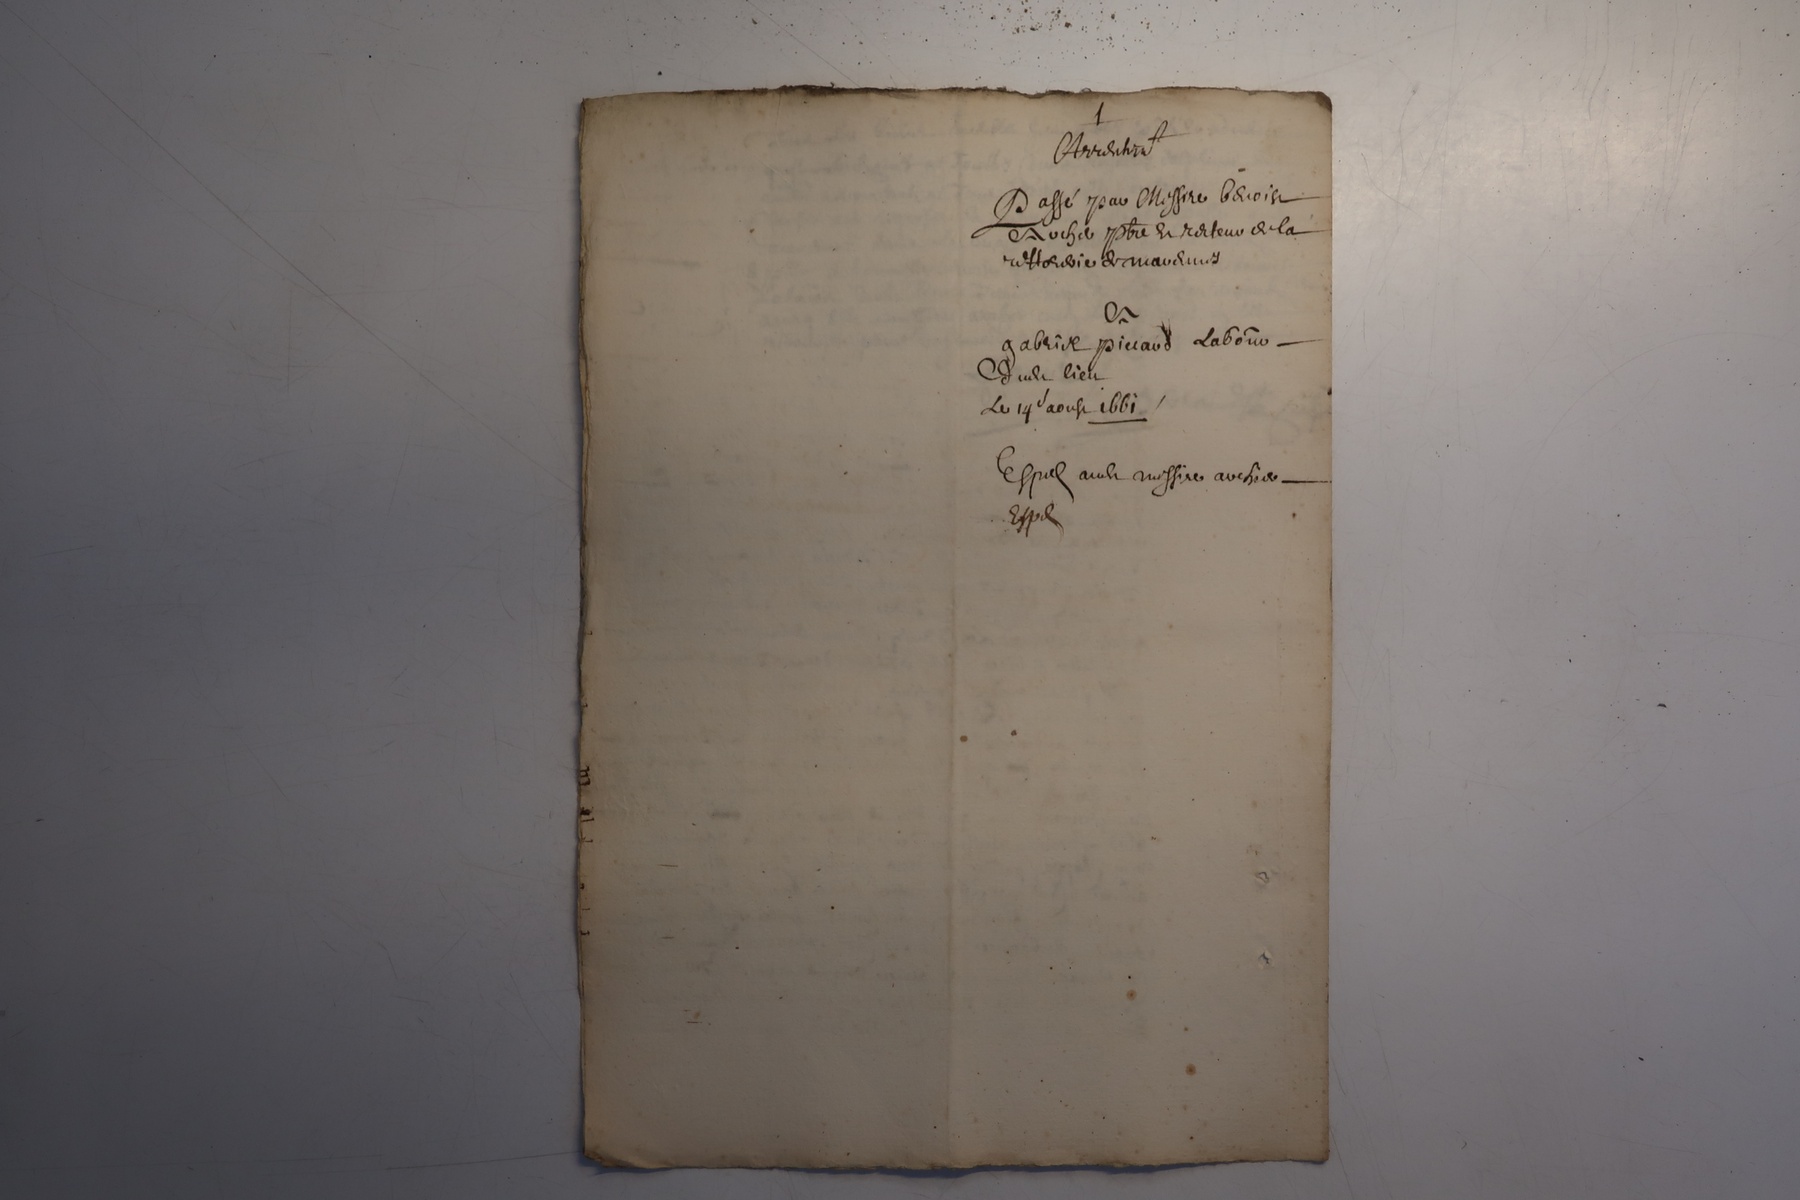 1
Arrentemt
Passé par Messire benoist
Archer ptre et recteur de la
rettorie de
A
gabriel picaud Labour
Dudt lieu
Le 14 aoust 1661
Expel audt messire archer
Expel